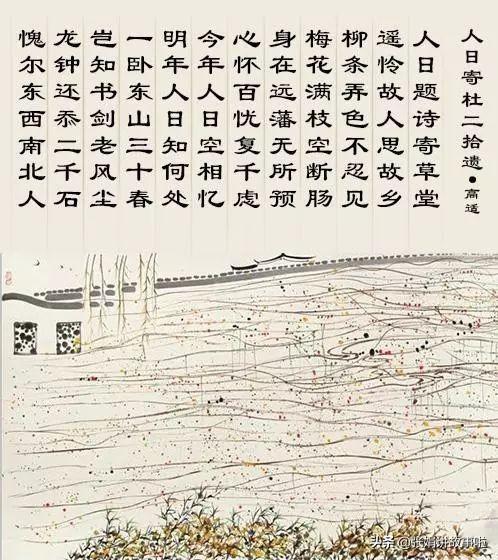 人日寄杜二拾遗•高适
人日题诗寄草堂
遥怜故人思故乡
柳条弄色不忍见
梅花满枝空断肠
身在远藩无所预
心怀百忧复千虑
今年人日空相忆
明年人日知何处
一卧东山三十春
岂知书剑老风尘
龙钟还忝二千石
愧尔东西南北人
头条@张娟讲故事啦